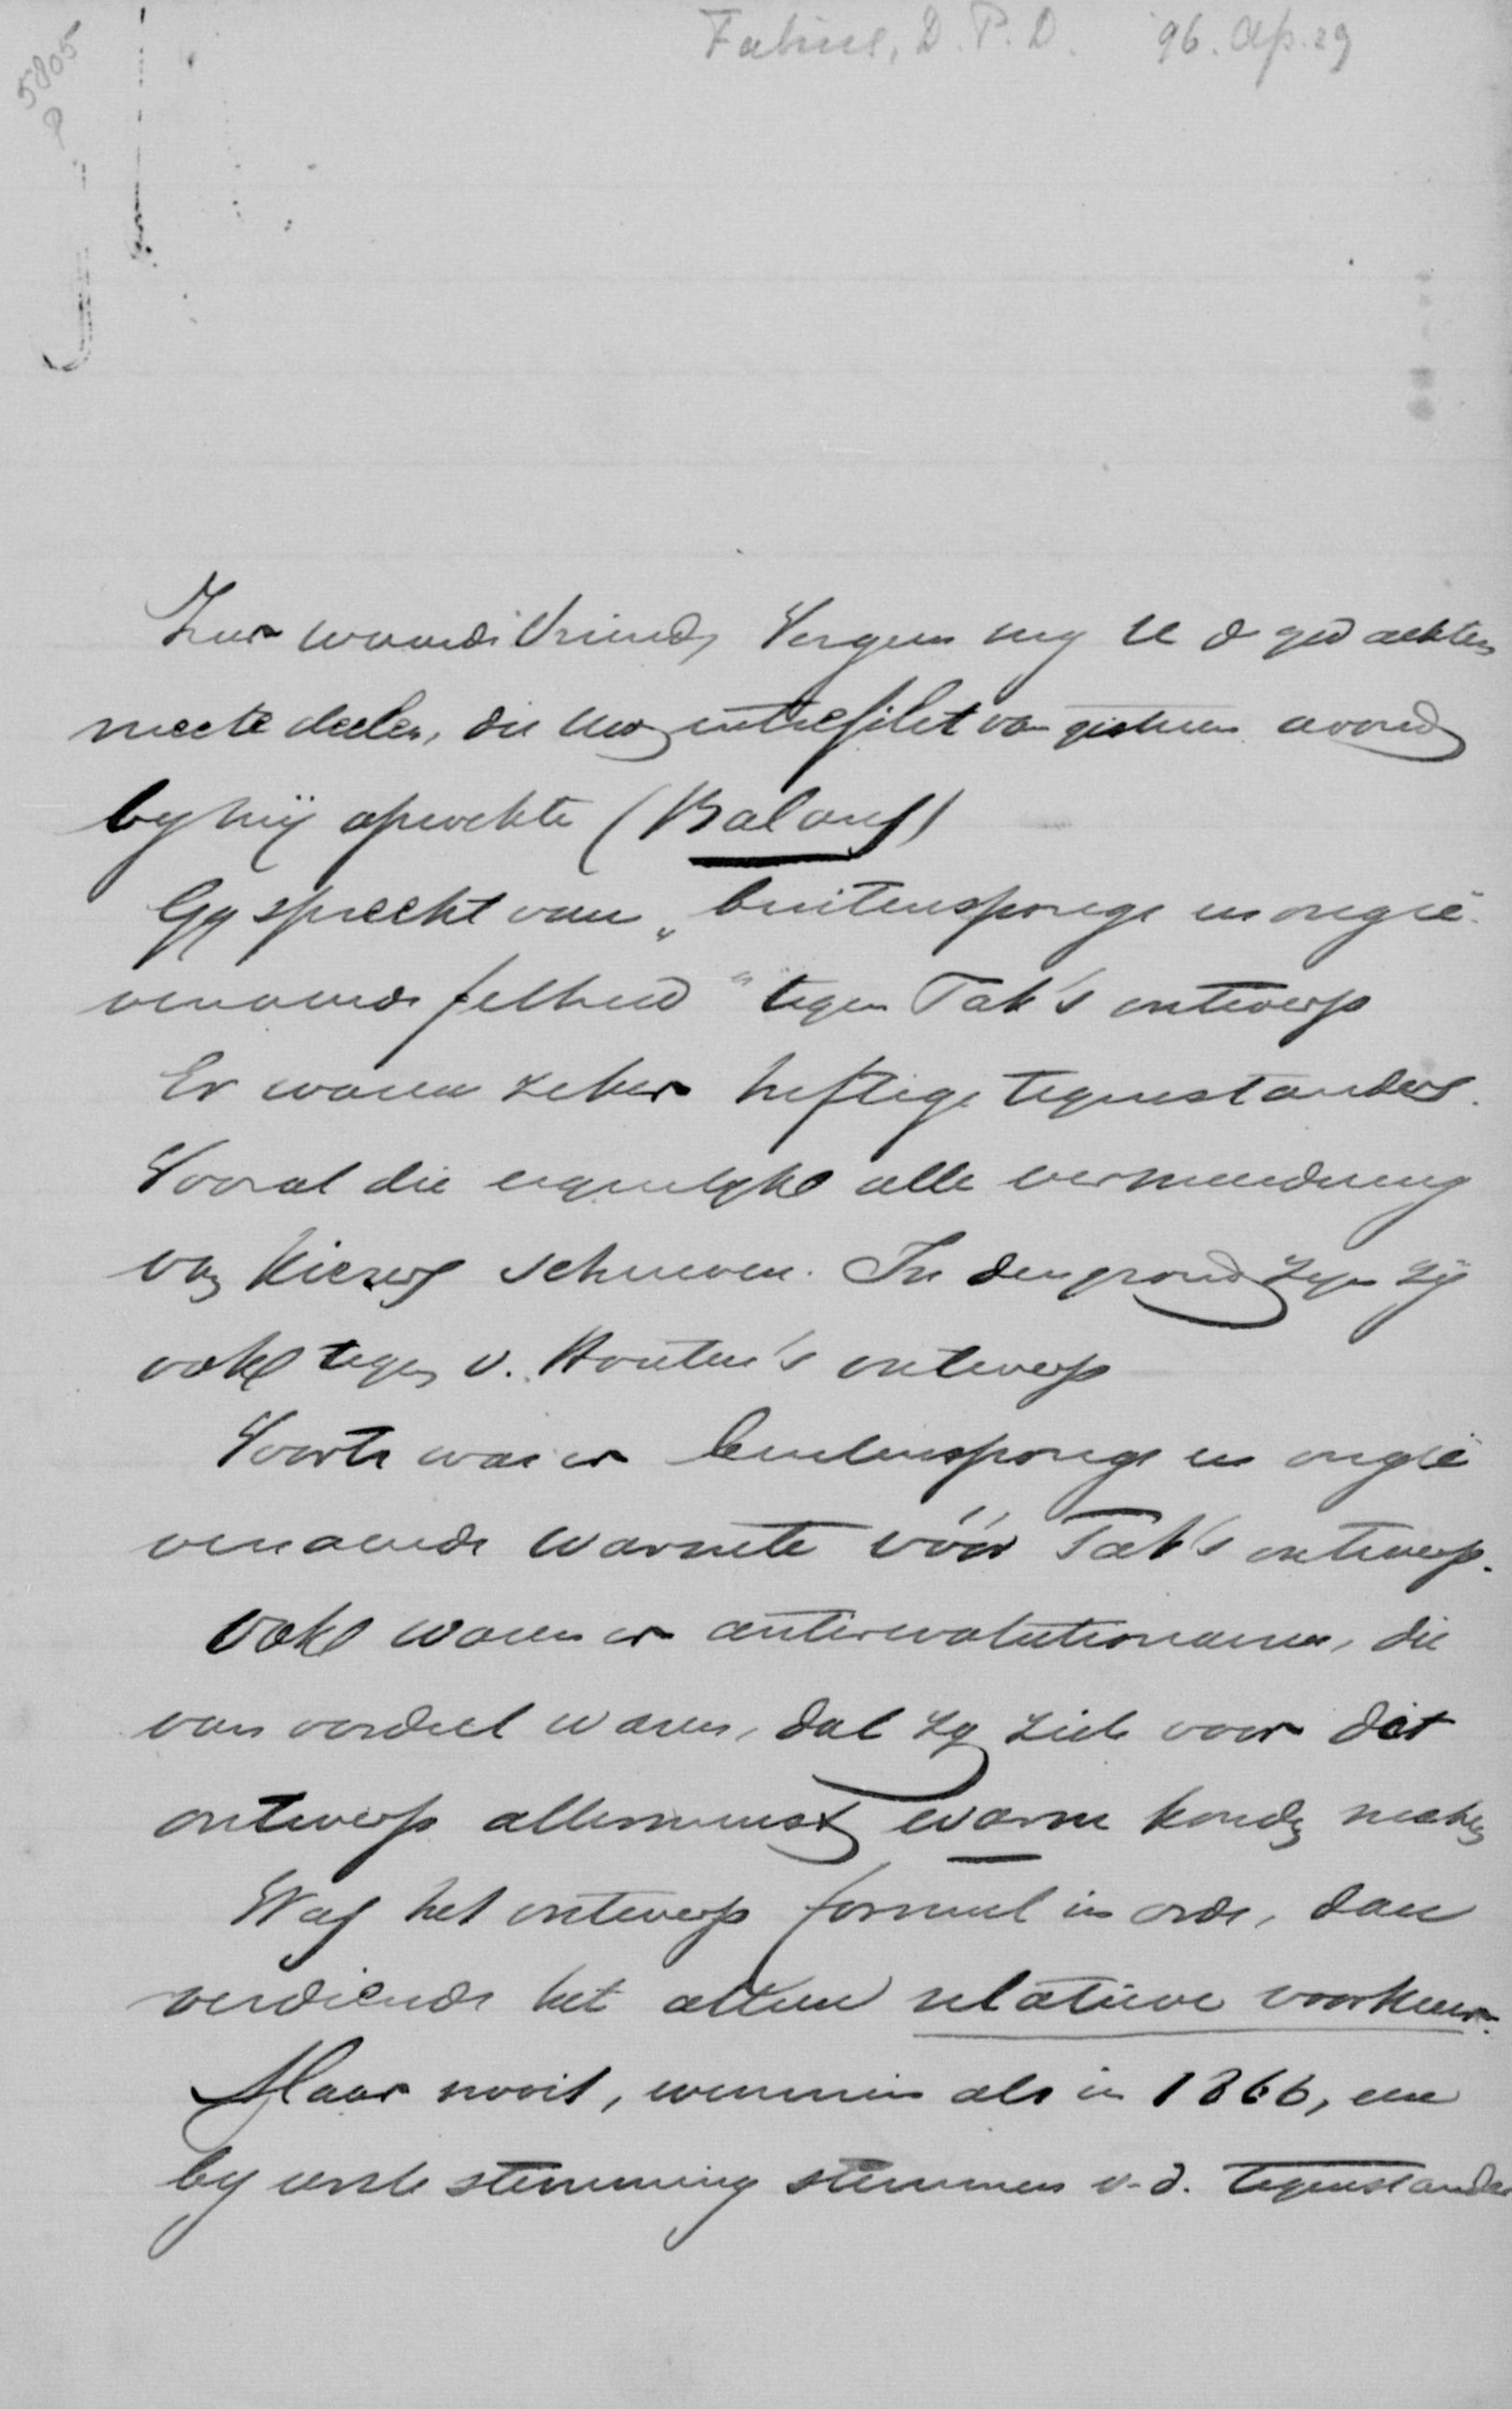 Fabius, D. P. D. 96. Ap. 29
5805
Zeer waarde Vriend, Vergun my U de gedachten
mee te deelen, die Uw entrefilet van gisteren avond
by mij opwekte (Balans)
Gy spreekt van „buitensporige en ongeë-
venaarde felheid" tegen Tak's ontwerp
Er waren zeker heftige tegenstanders.
Vooral die eigenlyk alle vermeerdering
van kiezers schuwen. In den grond zyn zij
ook tegen v. Houten's ontwerp
Voorts was er buitensporige en ongeë
venaarde warmte vóór Tak's ontwerp.
Ook waren er antirevolutionairen, die
van oordeel waren, dat zy zich voor dit
ontwerp allerminst warm konden maken
Was het ontwerp formeel in orde, dan
verdiende het alleen relatieve voorkeur.
Maar nooit, evenmin als in 1866, een
by eerste stemming stemmen v. d. tegenstander